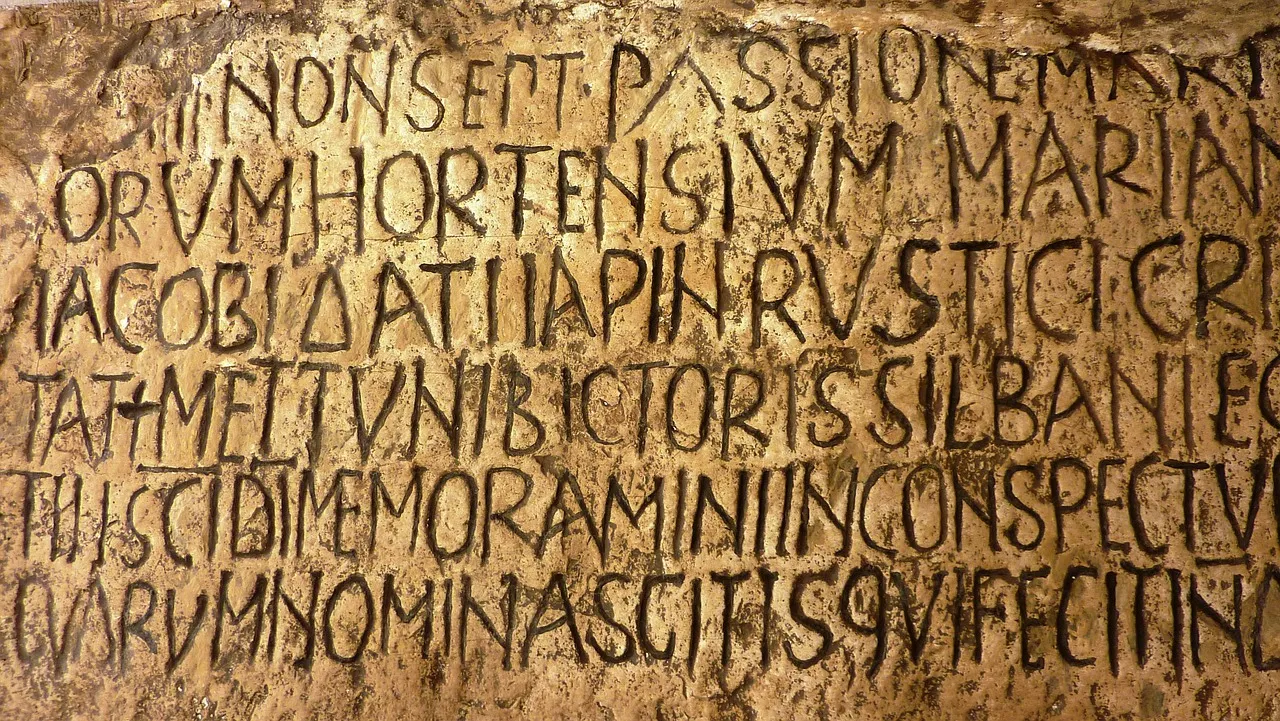 IIII NON SEPT PASSIONE MART
ORVM HORTENSIVM MARIAN
IACOBI DATI IAPIN RVSTICI CRI
TAT+ METTVNI BICTORIS SILBANI EG
TII SCI DI MEMORAMINI IN CONSPECTV
QVARVM NOMINA SCITIS QVI FECIT IND